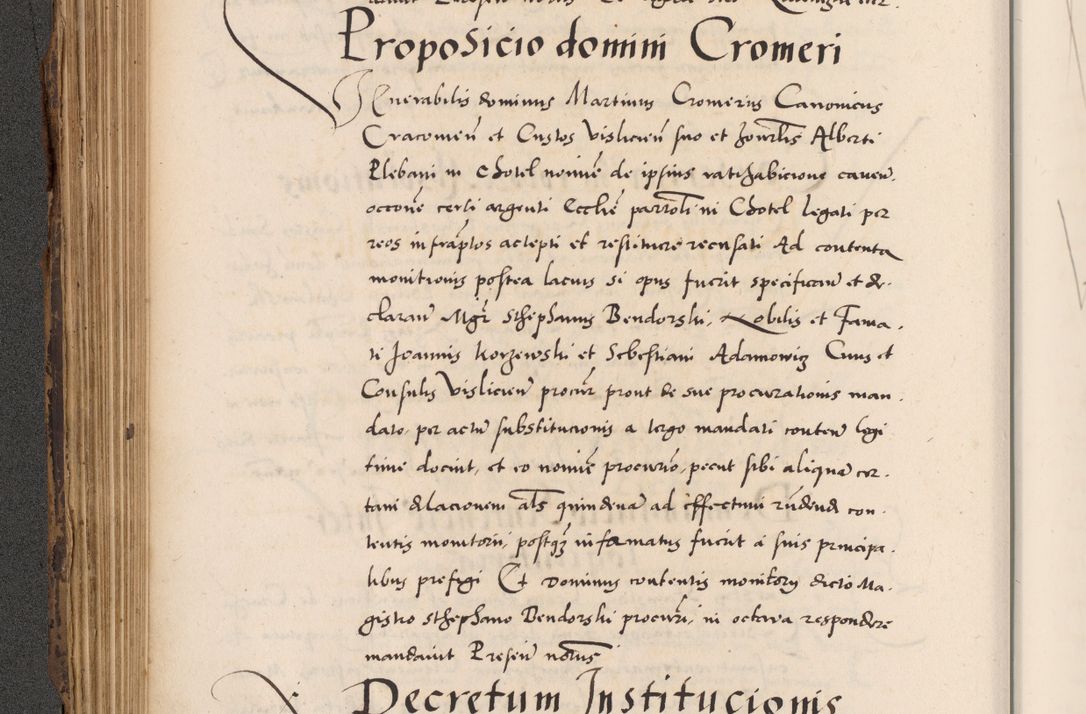 Proposicio domini Cromeri
Venerabilis dominus Martinus Cromerus Canonicus
Cracovien et Custos Vislicien suo et honorabilis Alberti
Plebani in Chotel nomine de ipsius ratihabicione caven.
occone certi argenti Ecclie parrolis in Chotel legati per
reos infrascriptos accepti et restituere recusati Ad contenta
monitionis postea lacius si opus fuerit specifican et de
claran Mgr Sthephanus Bendorski, Nobilis et Fama
ti Joannis Korzewski et Sebestiani Adamowicz Civis et
Consulis Vislicien procur prout de sue procurationis man
dato, per actum substitucionis a tergo mandati conten legi
time docuit, et eo nomine procurio, petiit sibi aliquam cer
tam dilacionem als quindenam ad effectum rndend con
tentis monitorii, postquam informatus fuerit a suis principa
libus prefigi Et Dominus contentis monitory dicto Ma
gistro Sthephano Bendorski procuri, in octava respondere
mandavit Presen notus
Decretum Institucionis